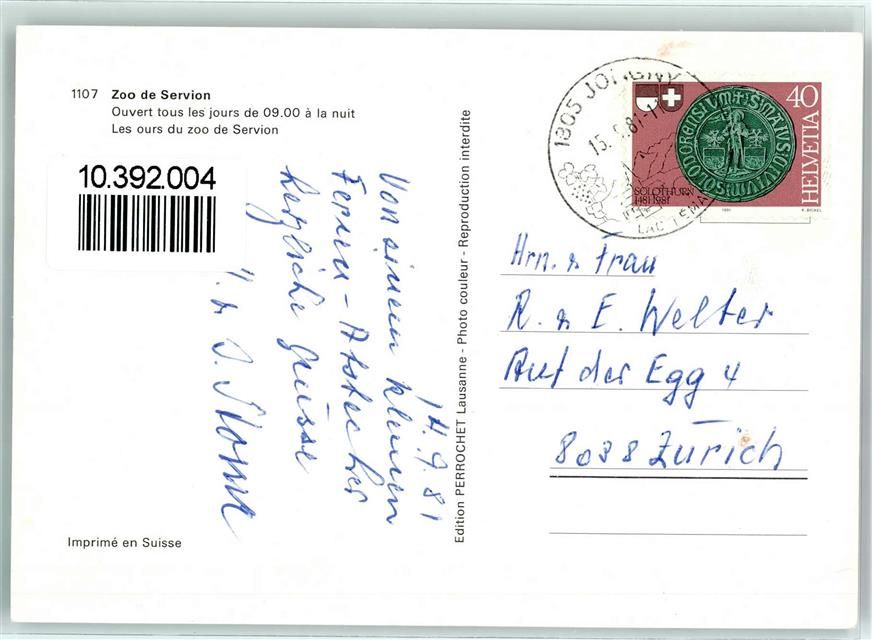 1107 Zoo de Servion
Ouvert tous les jours de 09.00 à la nuit
Les ours du zoo de Servion
10.392.004
14.9.81
Von einem kleinen
Ferien-Abstecher
herzliche Grüsse
Imprimé en Suisse
Edition PERROCHET Lausanne - Photo couleur - Reproduction interdite
1805 JONGNY
15.9.81-1
LAC LÉMAN
40
HELVETIA
SOLOTHURN
1481 1981
Hrn. u Frau
R. u E. Welter
Auf der Egg 4
8038 Zürich